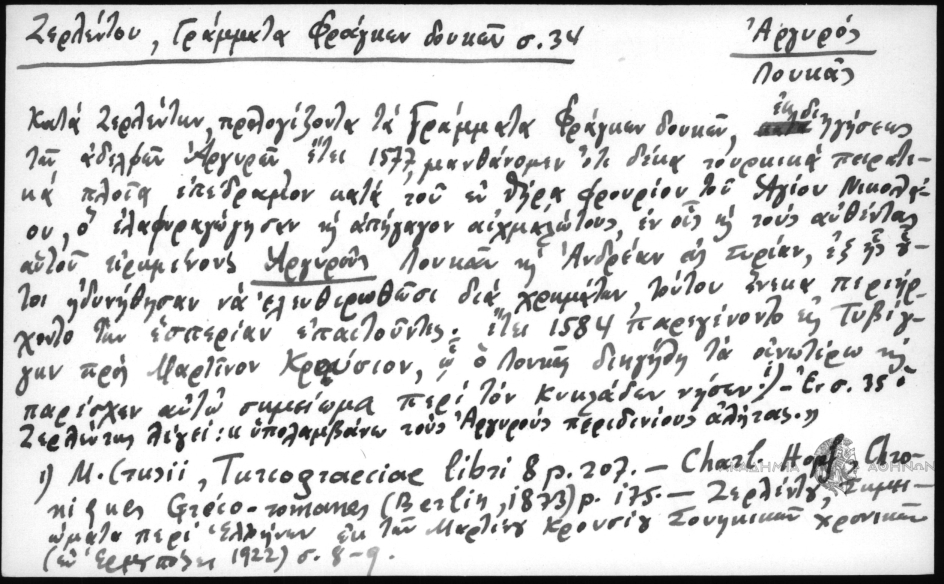 Ζερλέντου, Γράμματα Φράγκων δουκῶν σ. 34
Ἀργυρός
Λουκᾶς
Κατά Ζερλέντην, προλογίζοντα τά Γράμματα Φράγκων δουκῶν, ἐκ διηγήσεως
τῶν ἀδελφῶν Ἀργυρῶν, ἔτει 1577, μανθάνομεν ὅτι δέκα τουρκικά πειρατι-
κά πλοῖα ἐπέδραμον κατά τοῦ ἐν Θήρᾳ φρουρίου τοῦ Ἁγίου Νικολά-
ου, ὅ ἐλαφυραγώγησαν κ ἀπήγαγον αἰχμαλώτους, ἐν οἷς κ τούς αὐθέντας
αὐτοῦ εἰρημένους Ἀργυρούς Λουκᾶν κ Ἀνδρέαν εἰς Συρίαν, ἐξ ἧς οὗ-
τοι ἠδυνήθησαν νά ἐλευθερωθῶσι διά χρημάτων, τούτου ἕνεκα περιήρ-
χοντο τήν ἑσπερίαν ἐπαιτοῦντες· ἔτει 1584 παρεγένοντο εἰς Τυβίγ-
γην πρός Μαρτῖνον Κρούσιον, ᾧ ὁ Λουκᾶς διηγήθη τά ἀνωτέρω κ
παρέσχεν αὐτῷ σημείωμα περί τῶν Κυκλάδων νήσων.¹) – Ἐν σ. 35 ὁ
Ζερλέντης λέγει: «ὑπολαμβάνω τούς Ἀργυρούς περιδινίους ἀλήτας.»
1) M. Crusii, Turcograeciae libri 8 p. 207. – Charl. Hopf, Chro-
niques Gréco-romanes (Berlin, 1873) p. 175. – Ζερλέντου, Σημει-
ώματα περί Ἑλλήνων ἐκ τῶν Μαρτίνου Κρουσίου Σουηκικῶν χρονικῶν
(ἐν Ἑρμουπόλει 1922) σ. 8-9.
ΑΚΑΔΗΜΙΑ ΑΘΗΝΩΝ